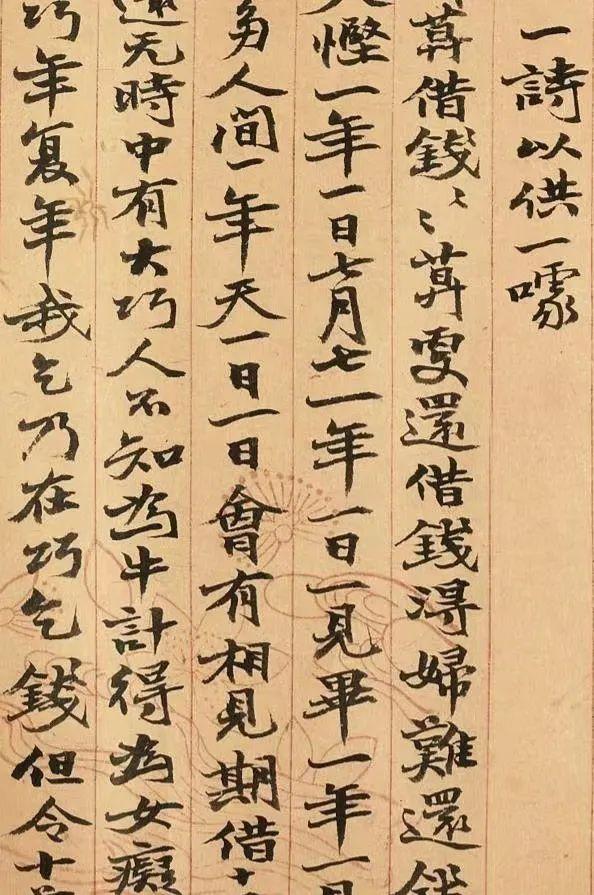 一詩以供一噱
算借錢〻算要還借錢得婦難還
慳一年一日七月七一年一日一見畢一年一
人間一年天一日一日會有相見期借
無時中有大巧人不知為牛計得為女癡
巧年复年我乞乃在巧乞錢但令十